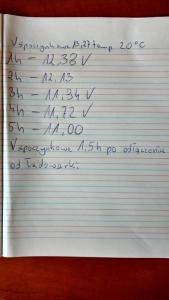 Wspoczynkowe 13,27 temp 20°C
1h - 12,38 V
2h - 12.13
3h - 11,94 V
4h - 11,72 V
5h - 11,00
Wspoczynkowe 1,5h po odłączeniu
od ładowarki.